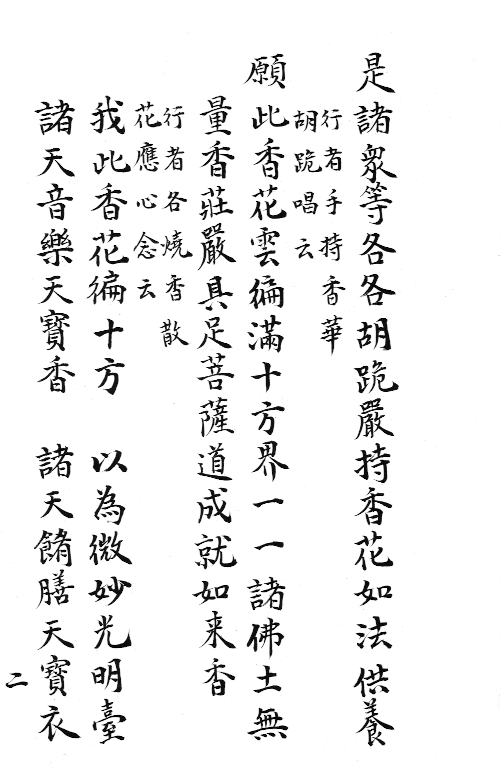 是諸衆等各各胡跪嚴持香花如法供養
行者手持香華
胡跪唱云
願此香花雲徧滿十方界一一諸佛土無
量香莊嚴具足菩薩道成就如来香
行者各燒香散
花應心念云
我此香花徧十方 以為微妙光明臺
諸天音樂天寶香 諸天餚膳天寶衣
二